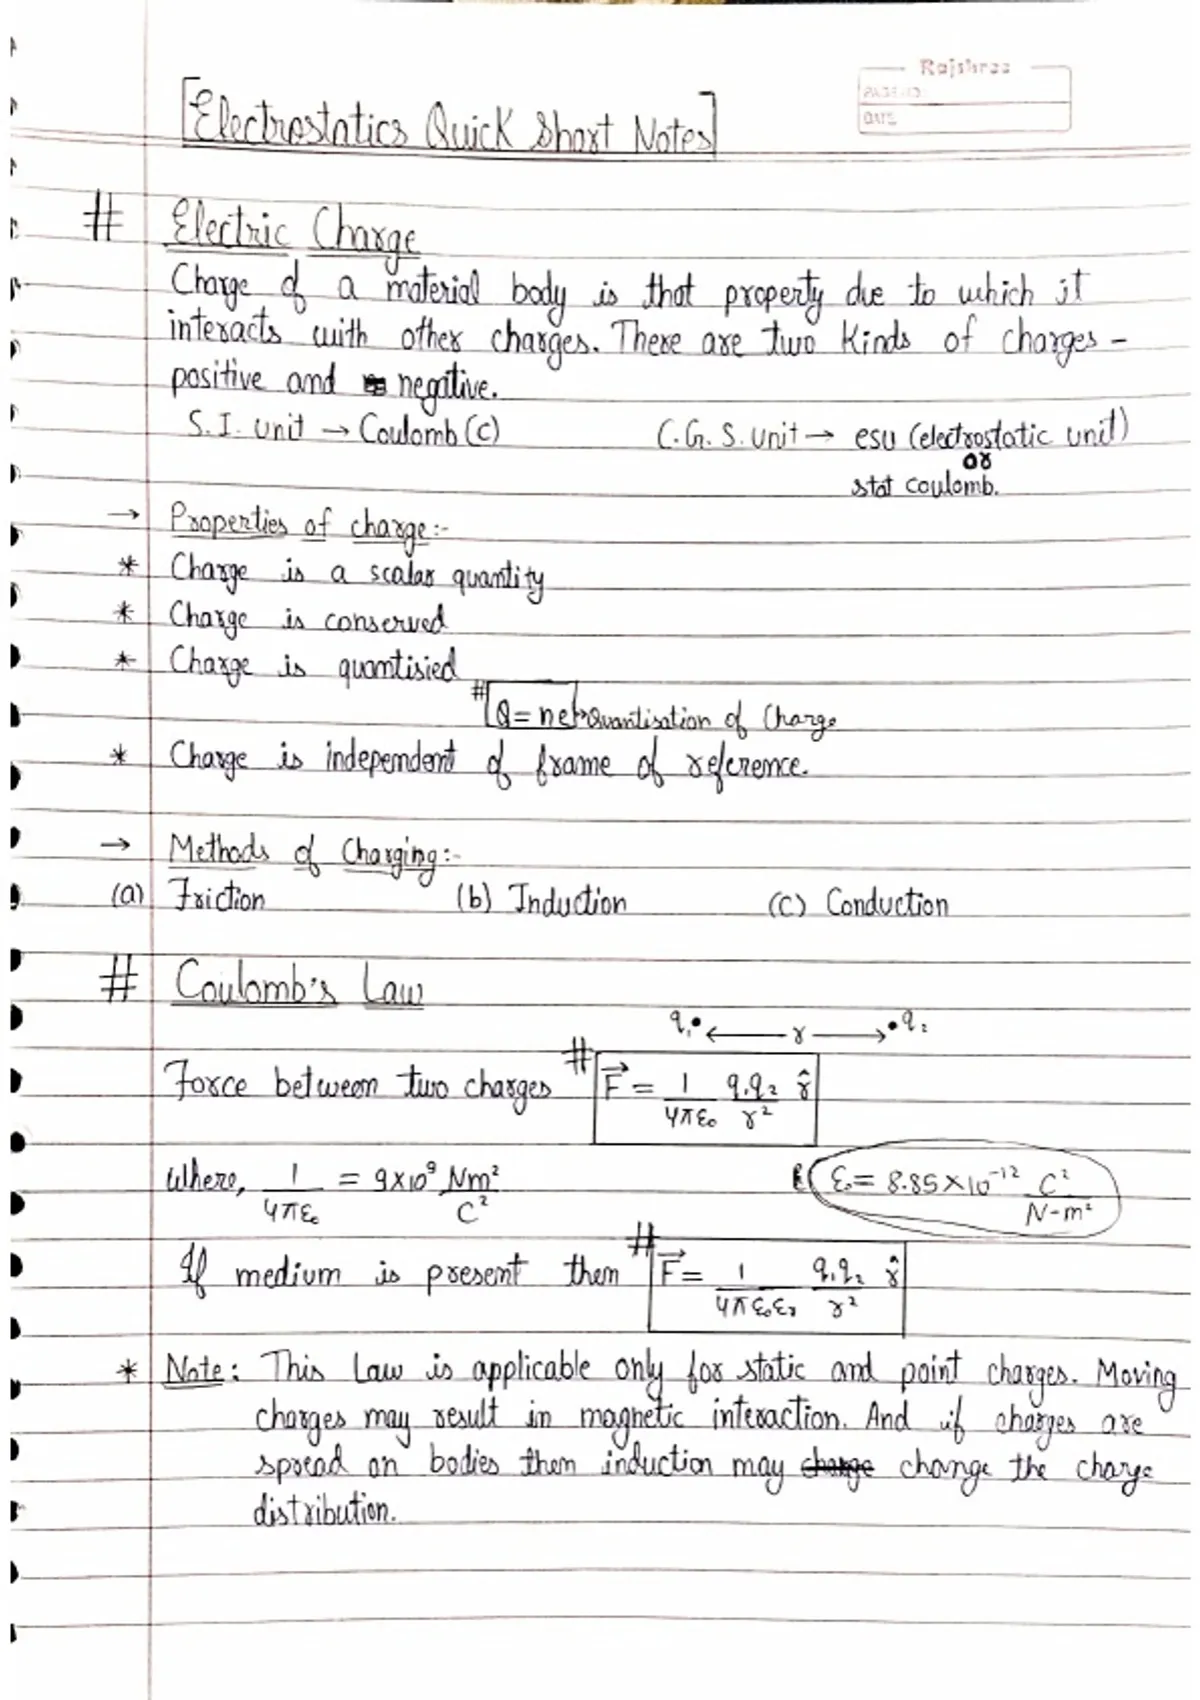 Rajshree
PAGE NO:
DATE
[Electrostatics Quick Short Notes]
# Electric Charge
Charge of a material body is that property due to which it
interacts with other charges. There are two Kinds of charges -
positive and negative.
S.I. unit → Coulomb (C) C.G.S. Unit → esu (electrostatic unit)
or
stat coulomb.
→ Properties of charge:-
* Charge is a scalar quantity
* Charge is conserved
* Charge is quantisied
# Q = ne → Quantisation of Charge
* Charge is independent of frame of reference.
→ Methods of Charging:-
(a) Friction (b) Induction (C) Conduction
# Coulomb's Law
q₁ • ← r → • q₂
Force between two charges # F⃗ = 1/4πε₀ q₁q₂/r² r̂
Where, 1/4πε₀ = 9×10⁹ Nm²/C² ε₀ = 8.85×10⁻¹² C²/N-m²
If medium is present then # F⃗ = 1/4πε₀εᵣ q₁q₂/r² r̂
* Note: This Law is applicable only for static and point charges. Moving
charges may result in magnetic interaction. And if charges are
spread on bodies then induction may charge change the charge
distribution.